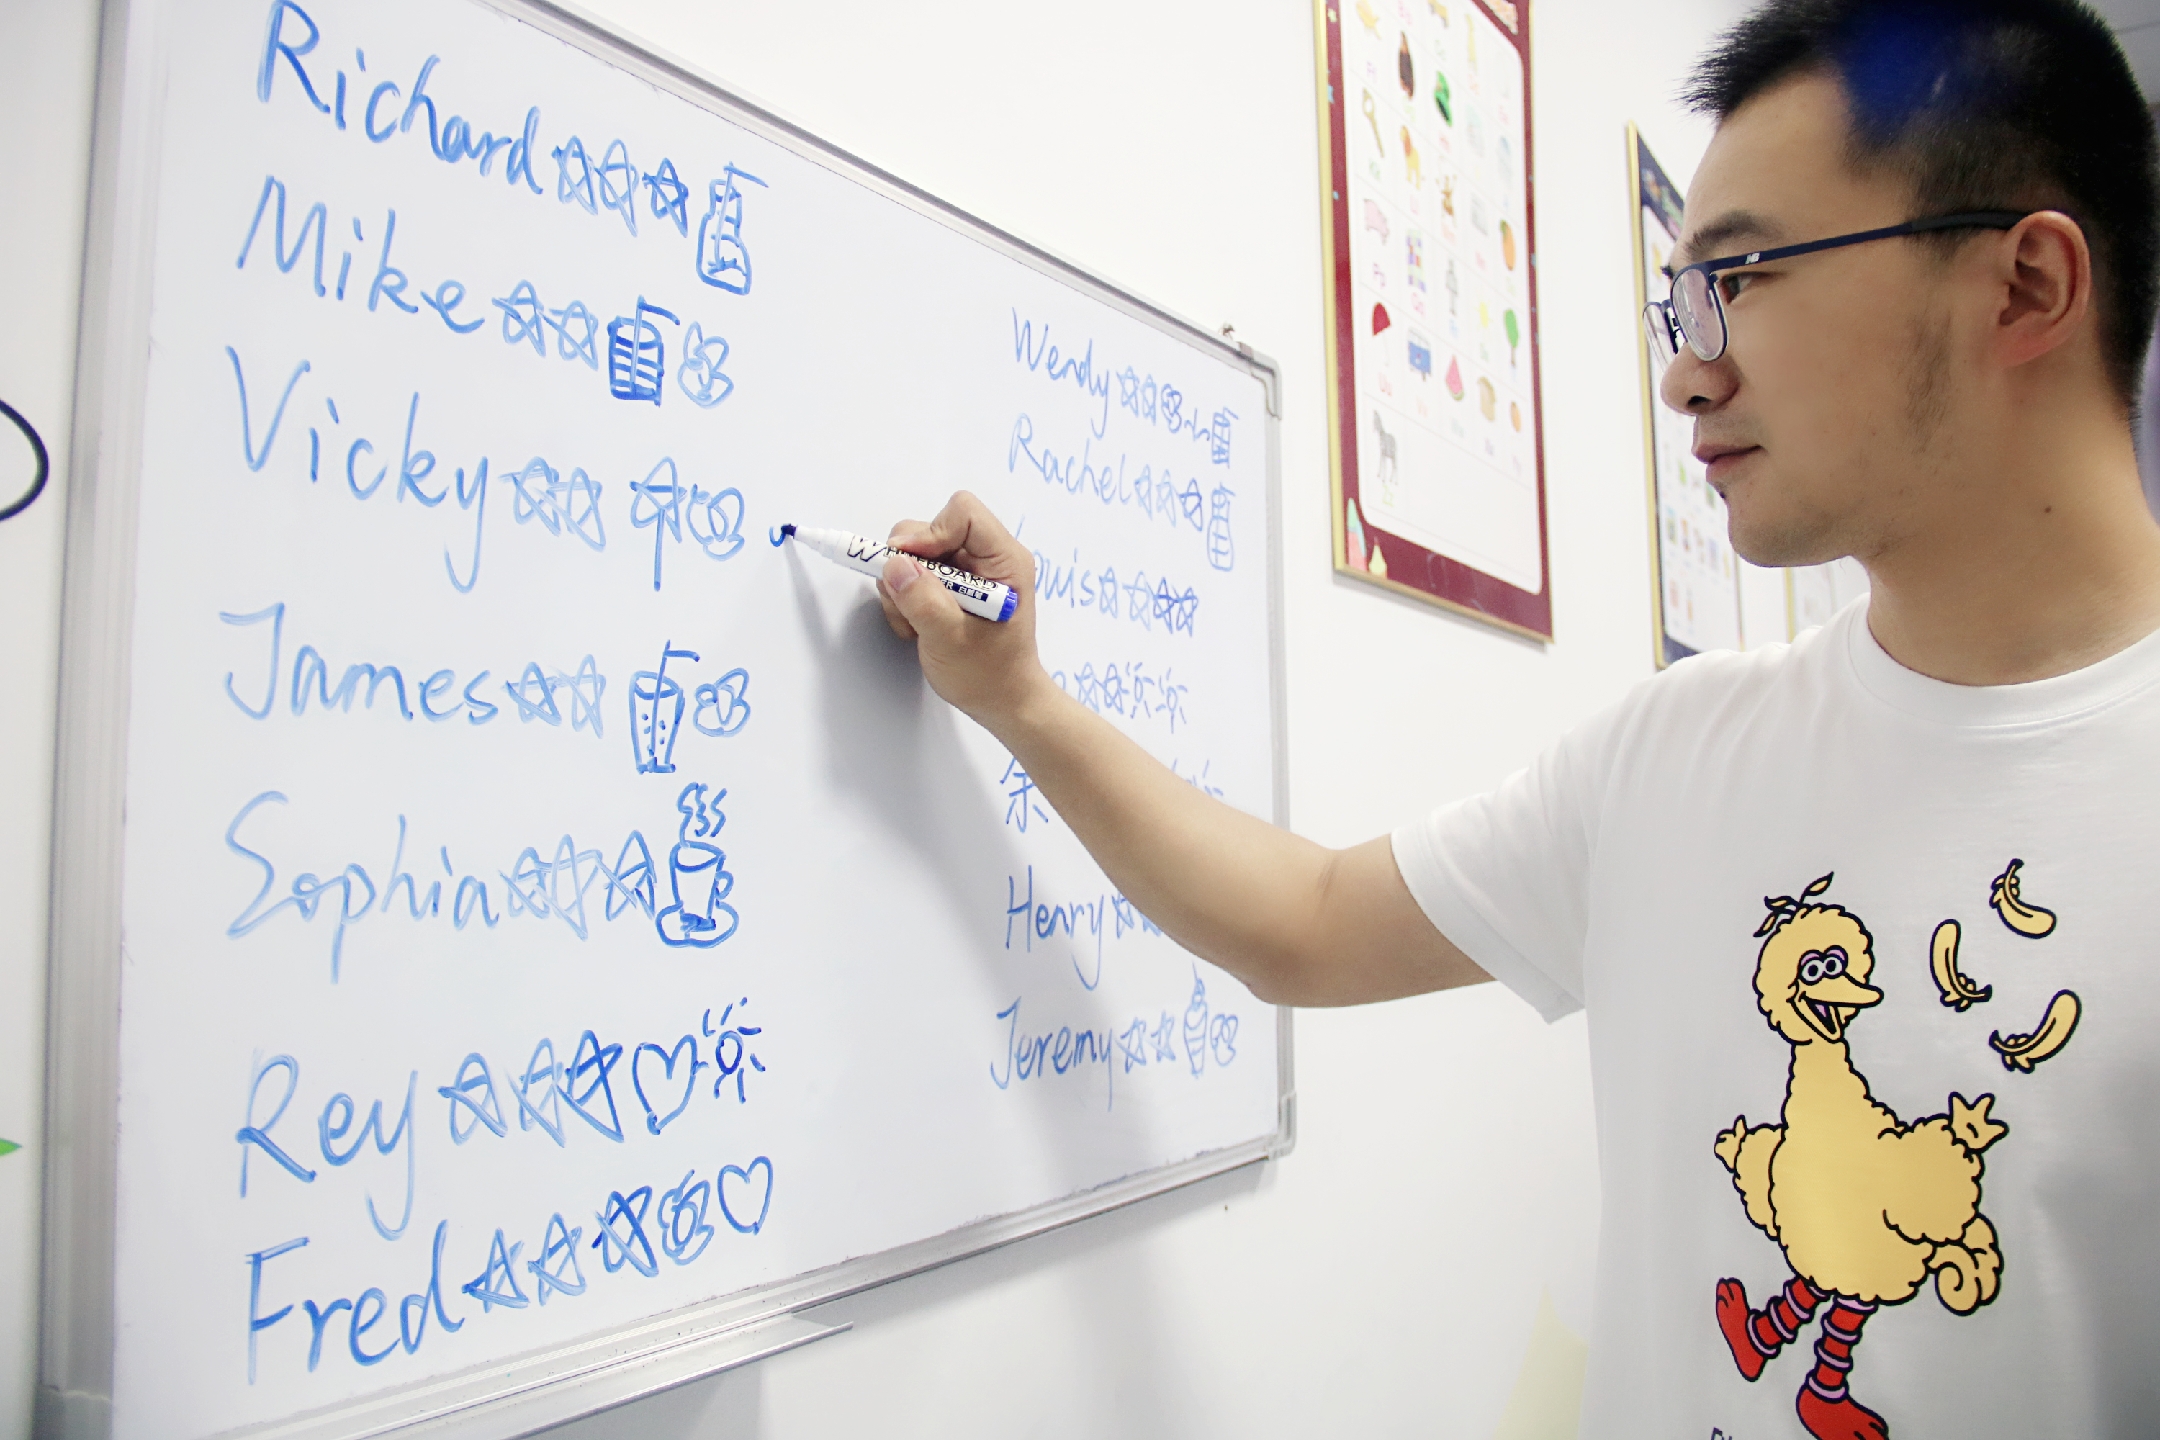 Richard
Mike
Vicky
James
Sophia
Rey
Fred
Wendy
Rachel
ouis
余
Henry
Jeremy
WHITEBOARD